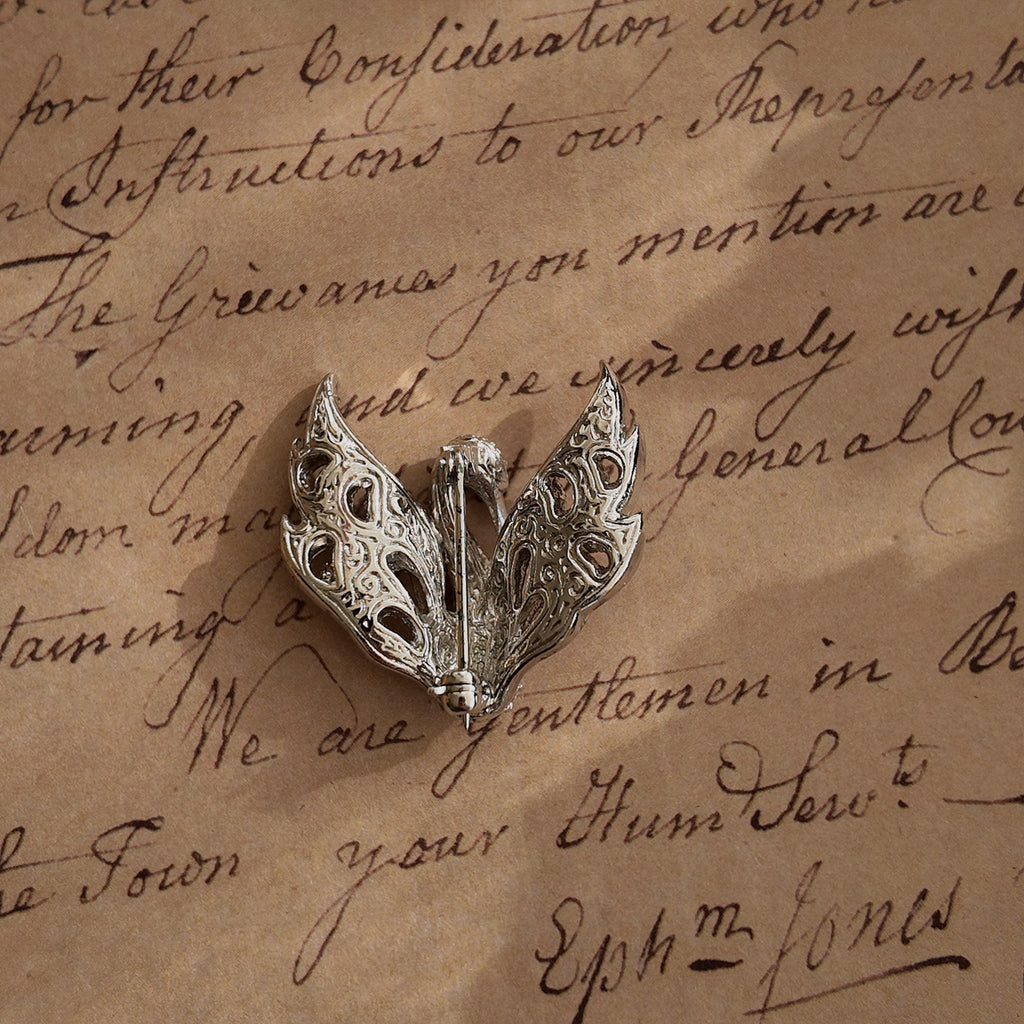 for their Consideration who
Instructions to our Representa
The Grievances you mention are
arming, and we sincerely wish
ldom ma General Cou
taining a
We are gentlemen in Be
he Town your Hum Servts
Ephm Jones